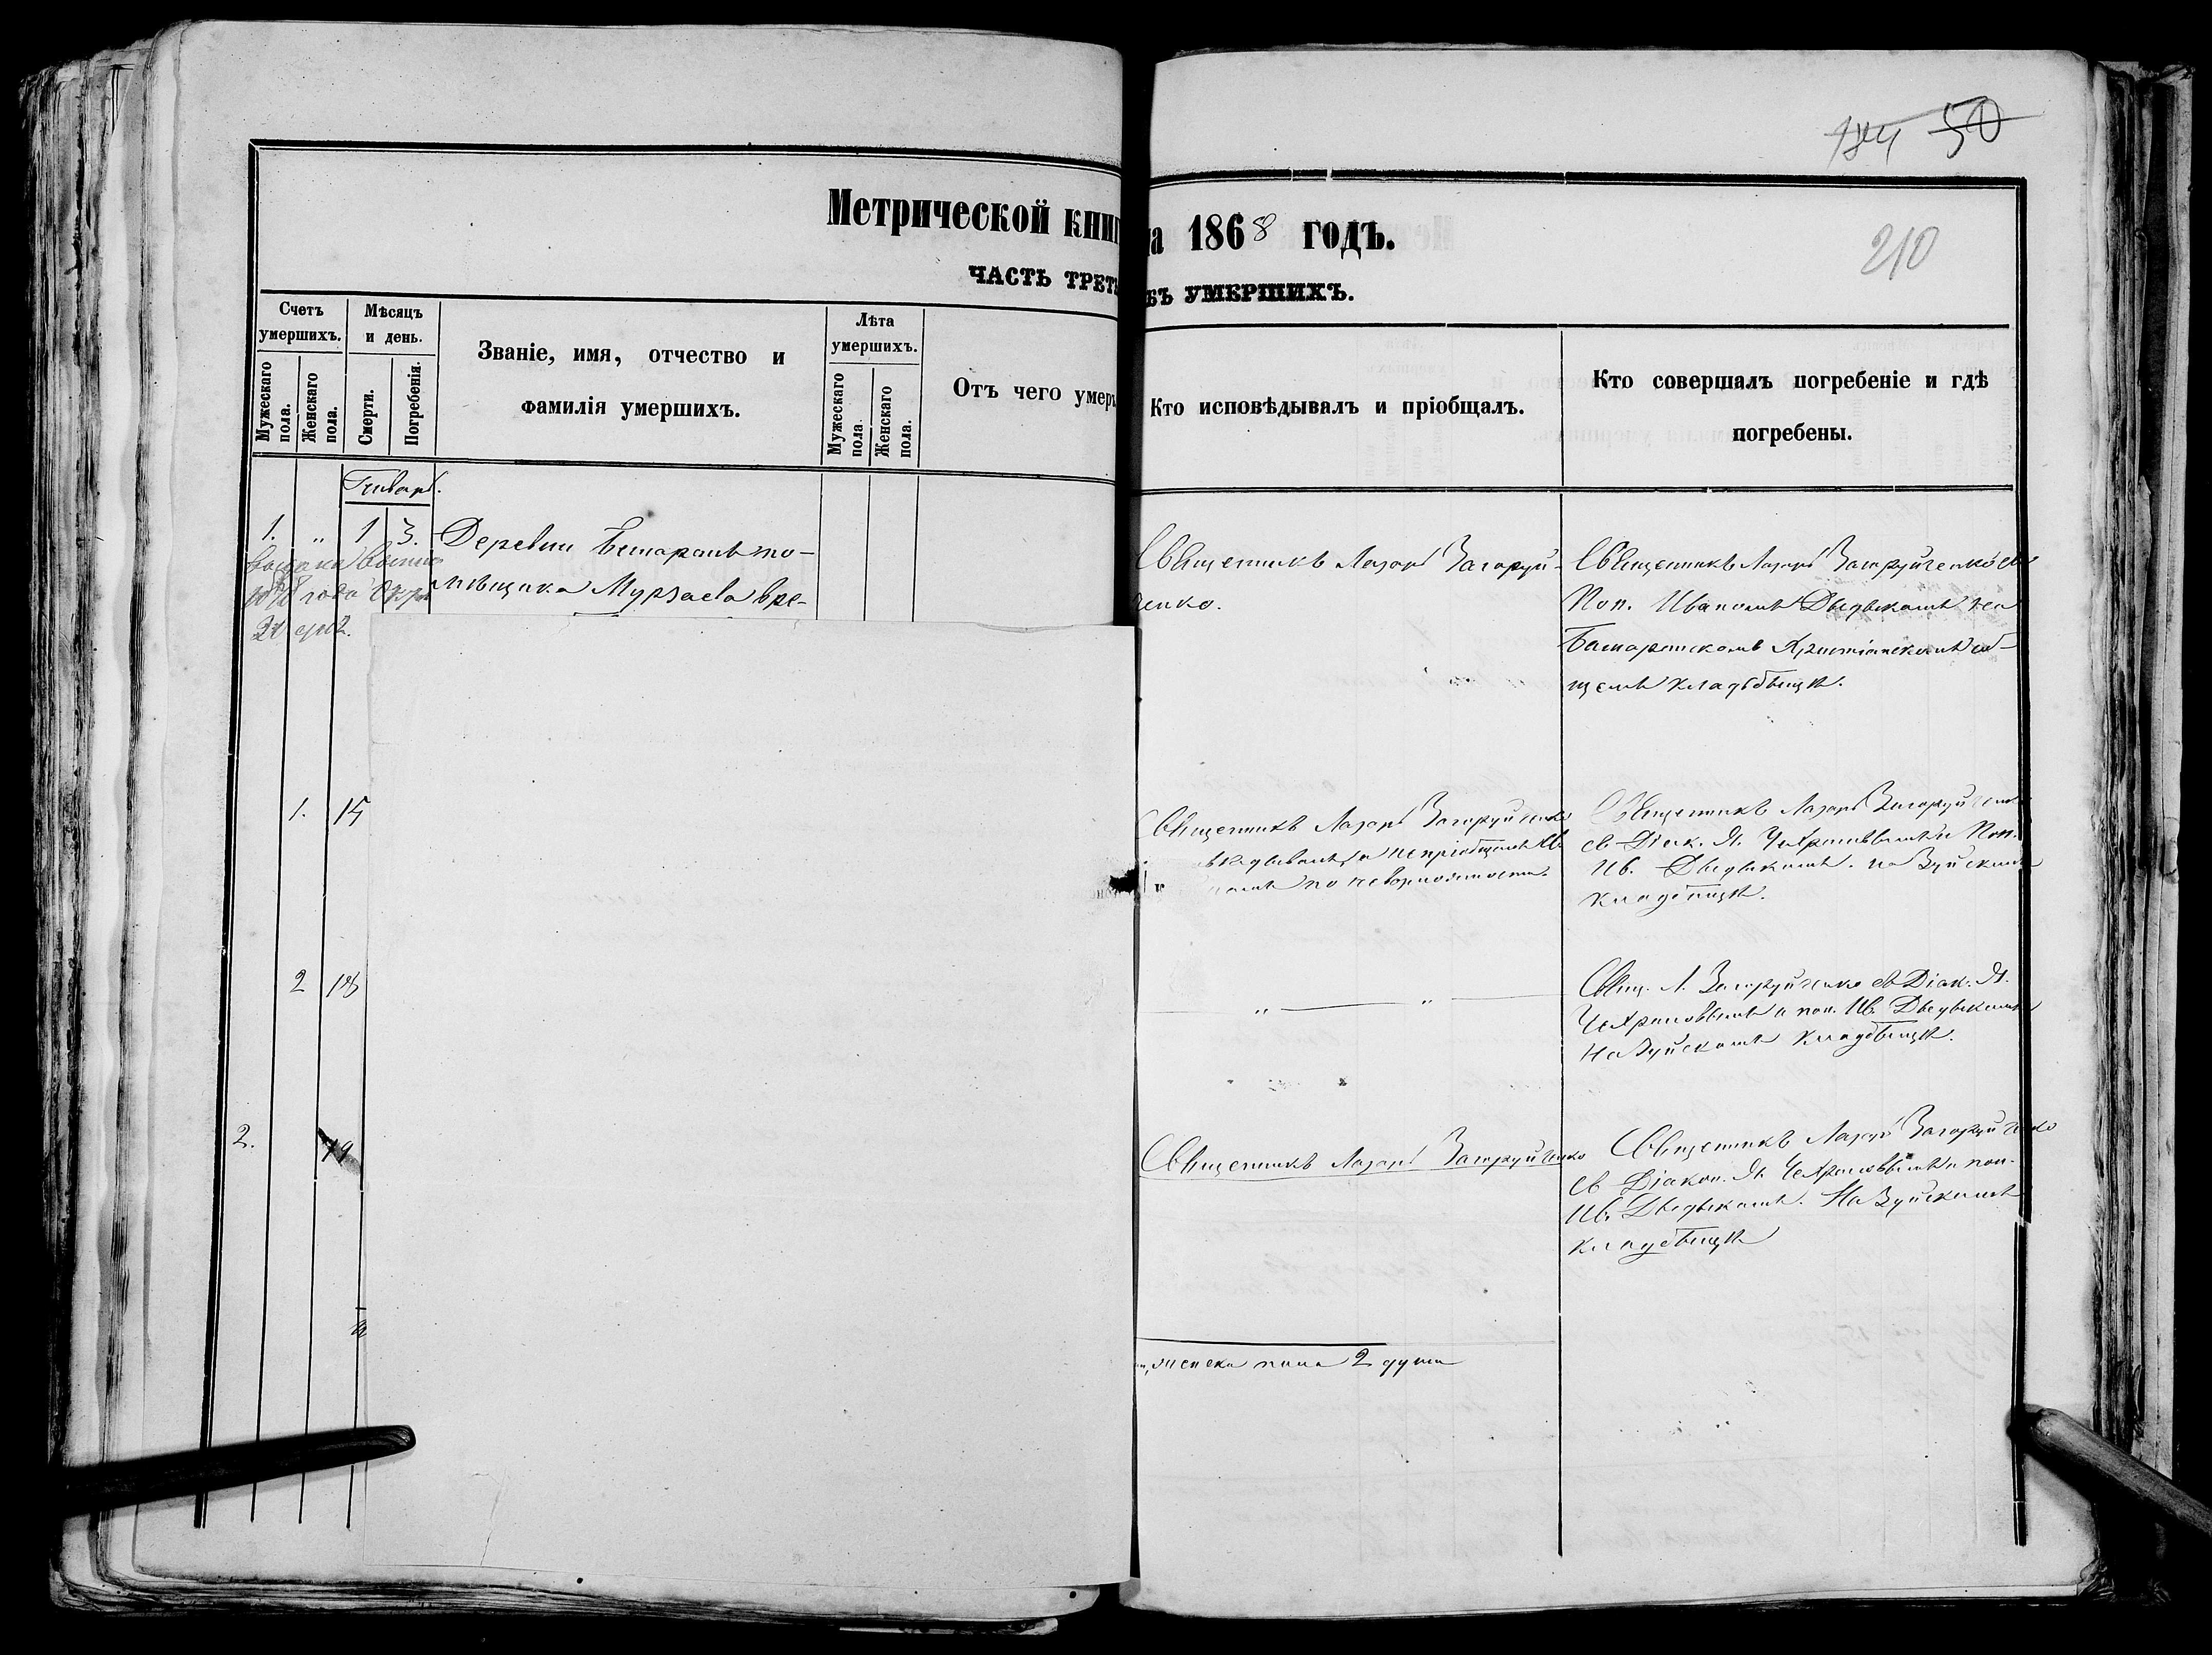 184 50
210
Метрической книг
на 1868 годъ.
ЧАСТЬ ТРЕТЬ
ОБЪ УМЕРШИХЪ.
Счетъ умершихъ.
Мужескаго пола.
Женскаго пола.
Мѣсяцъ и день.
Смерти.
Погребенія.
Званіе, имя, отчество и
фамилія умершихъ.
Лѣта умершихъ.
Мужескаго пола.
Женскаго пола.
Отъ чего умеръ
Кто исповѣдывалъ и пріобщалъ.
Кто совершалъ погребеніе и гдѣ
погребены.
Январь.
1. „ 1 3.
Деревни
мѣщика Мурзаева вре-
года
Священникъ Лазарь Загоруй-
ченко.
Священникъ Лазарь Загоруйченко съ
Пон. Иваномъ Дведыкомъ на
Христіанскомъ об-
щемъ кладбищѣ.
1. 15
Священникъ Лазарь Загоруйченко
непріобщалъ
по невозможности.
Священникъ Лазарь Загоруйченко
съ Діак. Я. и Пон.
Ив. Дведыкомъ. на Зуйскомъ
кладбищѣ.
2 18
„
Свящ. Л. Загоруйченко съ Діак. Я.
и пон. Ив. Дведыкомъ
На Зуйскомъ кладбищѣ.
2. 19
Священникъ Лазарь Загоруйченко
Священникъ Лазарь Загоруйченко
съ Діакон. Я. и пон.
Ив. Дведыкомъ. На Зуйскомъ
кладбищѣ
женска пола 2 души